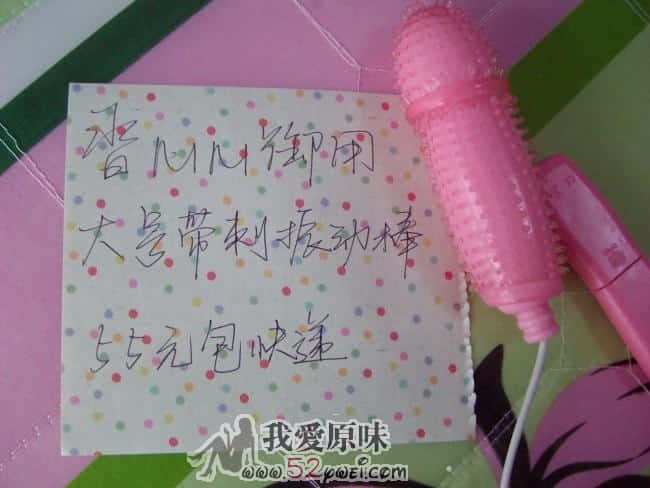 MM御用
大号带刺振动棒
55元包快递
我愛原味
www.52ywei.com